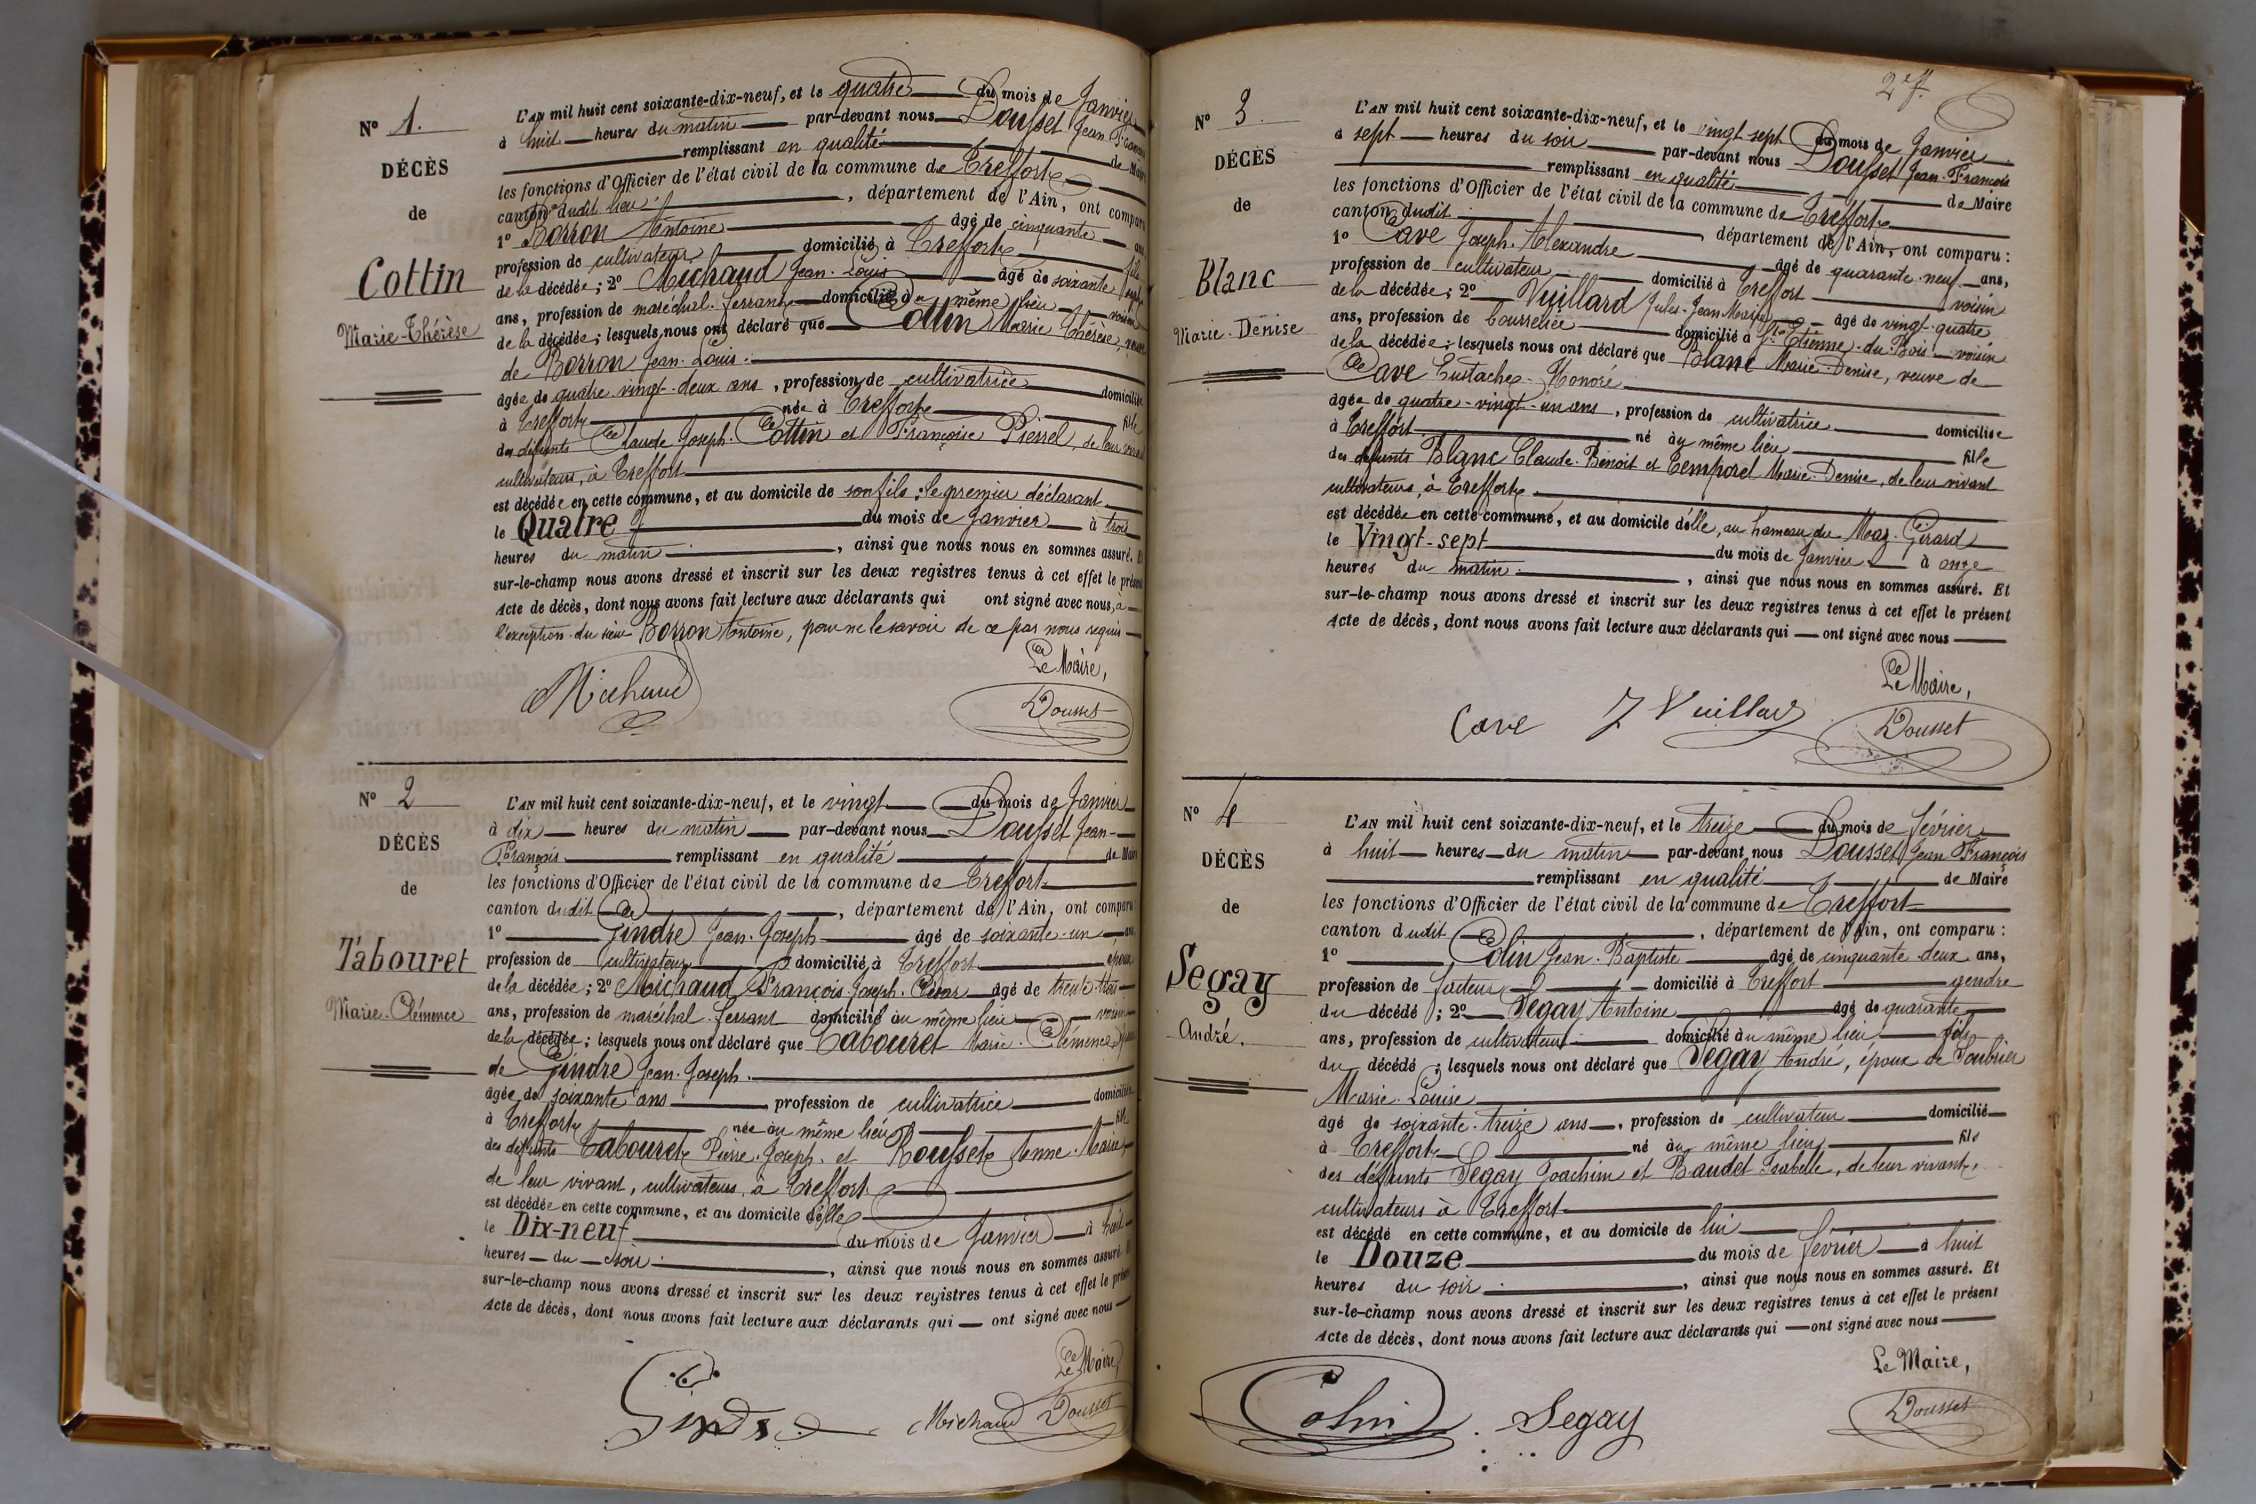 N° 1.
DÉCÈS
de
Cottin
Marie-Thérèse
L'AN mil huit cent soixante-dix-neuf, et le quatre du mois de Janvier
à huit heures du matin par-devant nous Dousset Jean François
remplissant en qualité de Maire
les fonctions d'Officier de l'état civil de la commune de Treffort
canton dudit lieu, département de l'Ain, ont comparu
1° Borron Antoine âgé de cinquante ans
profession de cultivateur domicilié à Treffort fils
de la décédée; 2° Michaud Jean-Louis âgé de soixante sept
ans, profession de maréchal-ferrant domicilié au même lieu voisin
de la décédée; lesquels nous ont déclaré que Cottin Marie Thérèse, veuve
de Borron Jean-Louis.
âgée de quatre-vingt-deux ans, profession de cultivatrice domiciliée
à Treffort née à Treffort fille
des défunts Claude Joseph Cottin et Françoise Pierrel, de leur vivant
cultivateurs, à Treffort
est décédée en cette commune, et au domicile de son fils, le premier déclarant
le Quatre du mois de Janvier à trois
heures du matin, ainsi que nous nous en sommes assuré. Et
sur-le-champ nous avons dressé et inscrit sur les deux registres tenus à cet effet le présent
Acte de décès, dont nous avons fait lecture aux déclarants qui ont signé avec nous, à
l'exception du sieur Borron Antoine, pour ne le savoir de ce par nous requis
Le Maire,
Michaud Dousset
N° 2
DÉCÈS
de
Tabouret
Marie-Clémence
L'AN mil huit cent soixante-dix-neuf, et le vingt du mois de Janvier
à dix heures du matin par-devant nous Dousset Jean-
François remplissant en qualité de Maire
les fonctions d'Officier de l'état civil de la commune de Treffort
canton dudit, département de l'Ain, ont comparu
1° Gindre Jean-Joseph âgé de soixante-un ans
profession de cultivateur domicilié à Treffort époux
de la décédée; 2° Michaud François-Joseph-César âgé de trente-trois
ans, profession de maréchal-ferrant domicilié au même lieu voisin
de la décédée; lesquels nous ont déclaré que Tabouret Marie-Clémence, épouse
de Gindre Jean-Joseph.
âgée de soixante ans profession de cultivatrice domiciliée
à Treffort née au même lieu fille
des défunts Tabouret Pierre-Joseph et Rousset Anne-Marie,
de leur vivant, cultivateurs, à Treffort
est décédée en cette commune, et au domicile d'elle
le Dix-neuf du mois de Janvier à huit
heures du soir, ainsi que nous nous en sommes assuré. Et
sur-le-champ nous avons dressé et inscrit sur les deux registres tenus à cet effet le présent
Acte de décès, dont nous avons fait lecture aux déclarants qui ont signé avec nous
Le Maire,
Gindre Michaud Dousset
N° 3.
DÉCÈS
de
Blanc
Marie-Denise
L'AN mil huit cent soixante-dix-neuf, et le vingt sept du mois de Janvier
à sept heures du soir par-devant nous Dousset Jean-François
remplissant en qualité de Maire
les fonctions d'Officier de l'état civil de la commune de Treffort
canton dudit, département de l'Ain, ont comparu :
1° Cave Joseph-Alexandre âgé de quarante-neuf ans,
profession de cultivateur domicilié à Treffort voisin
de la décédée; 2° Vuillard Jules-Jean-Marie âgé de vingt-quatre
ans, profession de bourrelier domicilié à St Etienne-du-Bois voisin
de la décédée; lesquels nous ont déclaré que Blanc Marie-Denise, veuve de
Cave Eustache-Honoré
âgée de quatre-vingt-un ans, profession de cultivatrice domiciliée
à Treffort né au même lieu fille
des défunts Blanc Claude-Benoit et Temporel Marie-Denise, de leur vivant
cultivateurs, à Treffort
est décédée en cette commune, et au domicile d'elle, au hameau du Maz-Girard
le Vingt-sept du mois de Janvier à onze
heures du matin, ainsi que nous nous en sommes assuré. Et
sur-le-champ nous avons dressé et inscrit sur les deux registres tenus à cet effet le présent
Acte de décès, dont nous avons fait lecture aux déclarants qui ont signé avec nous
Le Maire,
Cave J Vuillard Dousset
N° 4
DÉCÈS
de
Segay
André.
L'AN mil huit cent soixante-dix-neuf, et le treize du mois de février
à huit heures du matin par-devant nous Dousset Jean François
remplissant en qualité de Maire
les fonctions d'Officier de l'état civil de la commune de Treffort
canton dudit, département de l'Ain, ont comparu :
1° Colin Jean-Baptiste âgé de cinquante-deux ans,
profession de facteur domicilié à Treffort gendre
du décédé; 2° Segay Antoine âgé de quarante
ans, profession de cultivateur domicilié au même lieu fils
du décédé; lesquels nous ont déclaré que Segay André, époux de Soubrier
Marie-Louise
âgé de soixante-treize ans, profession de cultivateur domicilié
à Treffort né au même lieu fils
des défunts Segay Joachim et Baudet Isabelle, de leur vivant,
cultivateurs à Treffort
est décédé en cette commune, et au domicile de lui
le Douze du mois de février à huit
heures du soir, ainsi que nous nous en sommes assuré. Et
sur-le-champ nous avons dressé et inscrit sur les deux registres tenus à cet effet le présent
Acte de décès, dont nous avons fait lecture aux déclarants qui ont signé avec nous
Le Maire,
Colin Segay Dousset